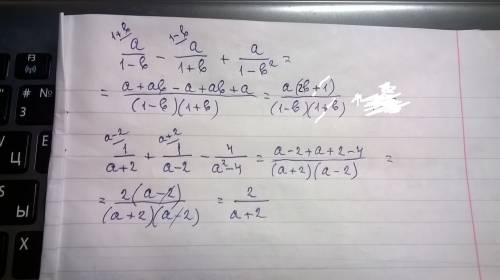 1+b 1-b
a/(1-b) - a/(1+b) + a/(1-b²) =
= (a+ab-a+ab+a)/((1-b)(1+b)) = a(2b+1)/((1-b)(1+b))
a-2 a+2
1/(a+2) + 1/(a-2) - 4/(a²-4) = (a-2+a+2-4)/((a+2)(a-2)) =
= 2(a-2)/((a+2)(a-2)) = 2/(a+2)
F3
# №
3
Ц
4
S
Ы
X